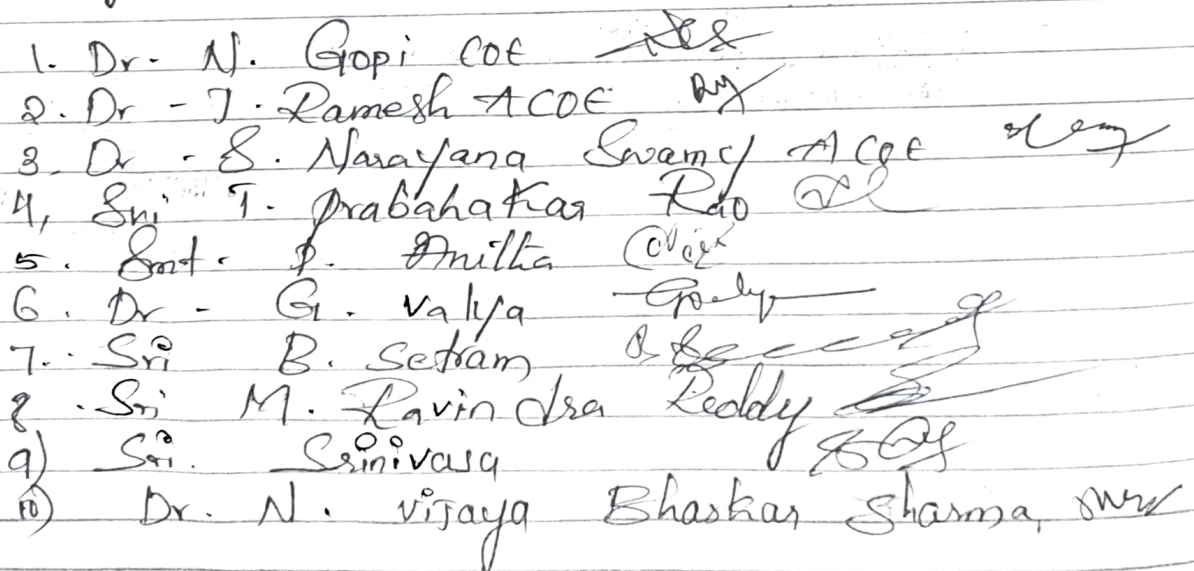 1. Dr. N. Gopi COE
2. Dr - J. Ramesh ACOE
3. Dr - S. Narayana Swamy ACOE
4, Sri T. Prabahakar Rao
5. Smt. P. Anitha
6. Dr - G. Valya
7. Sri B. Setram
8. Sri M. Ravindra Reddy
9) Sri. Srinivasa
10) Dr. N. Vijaya Bhaskar Sharma,